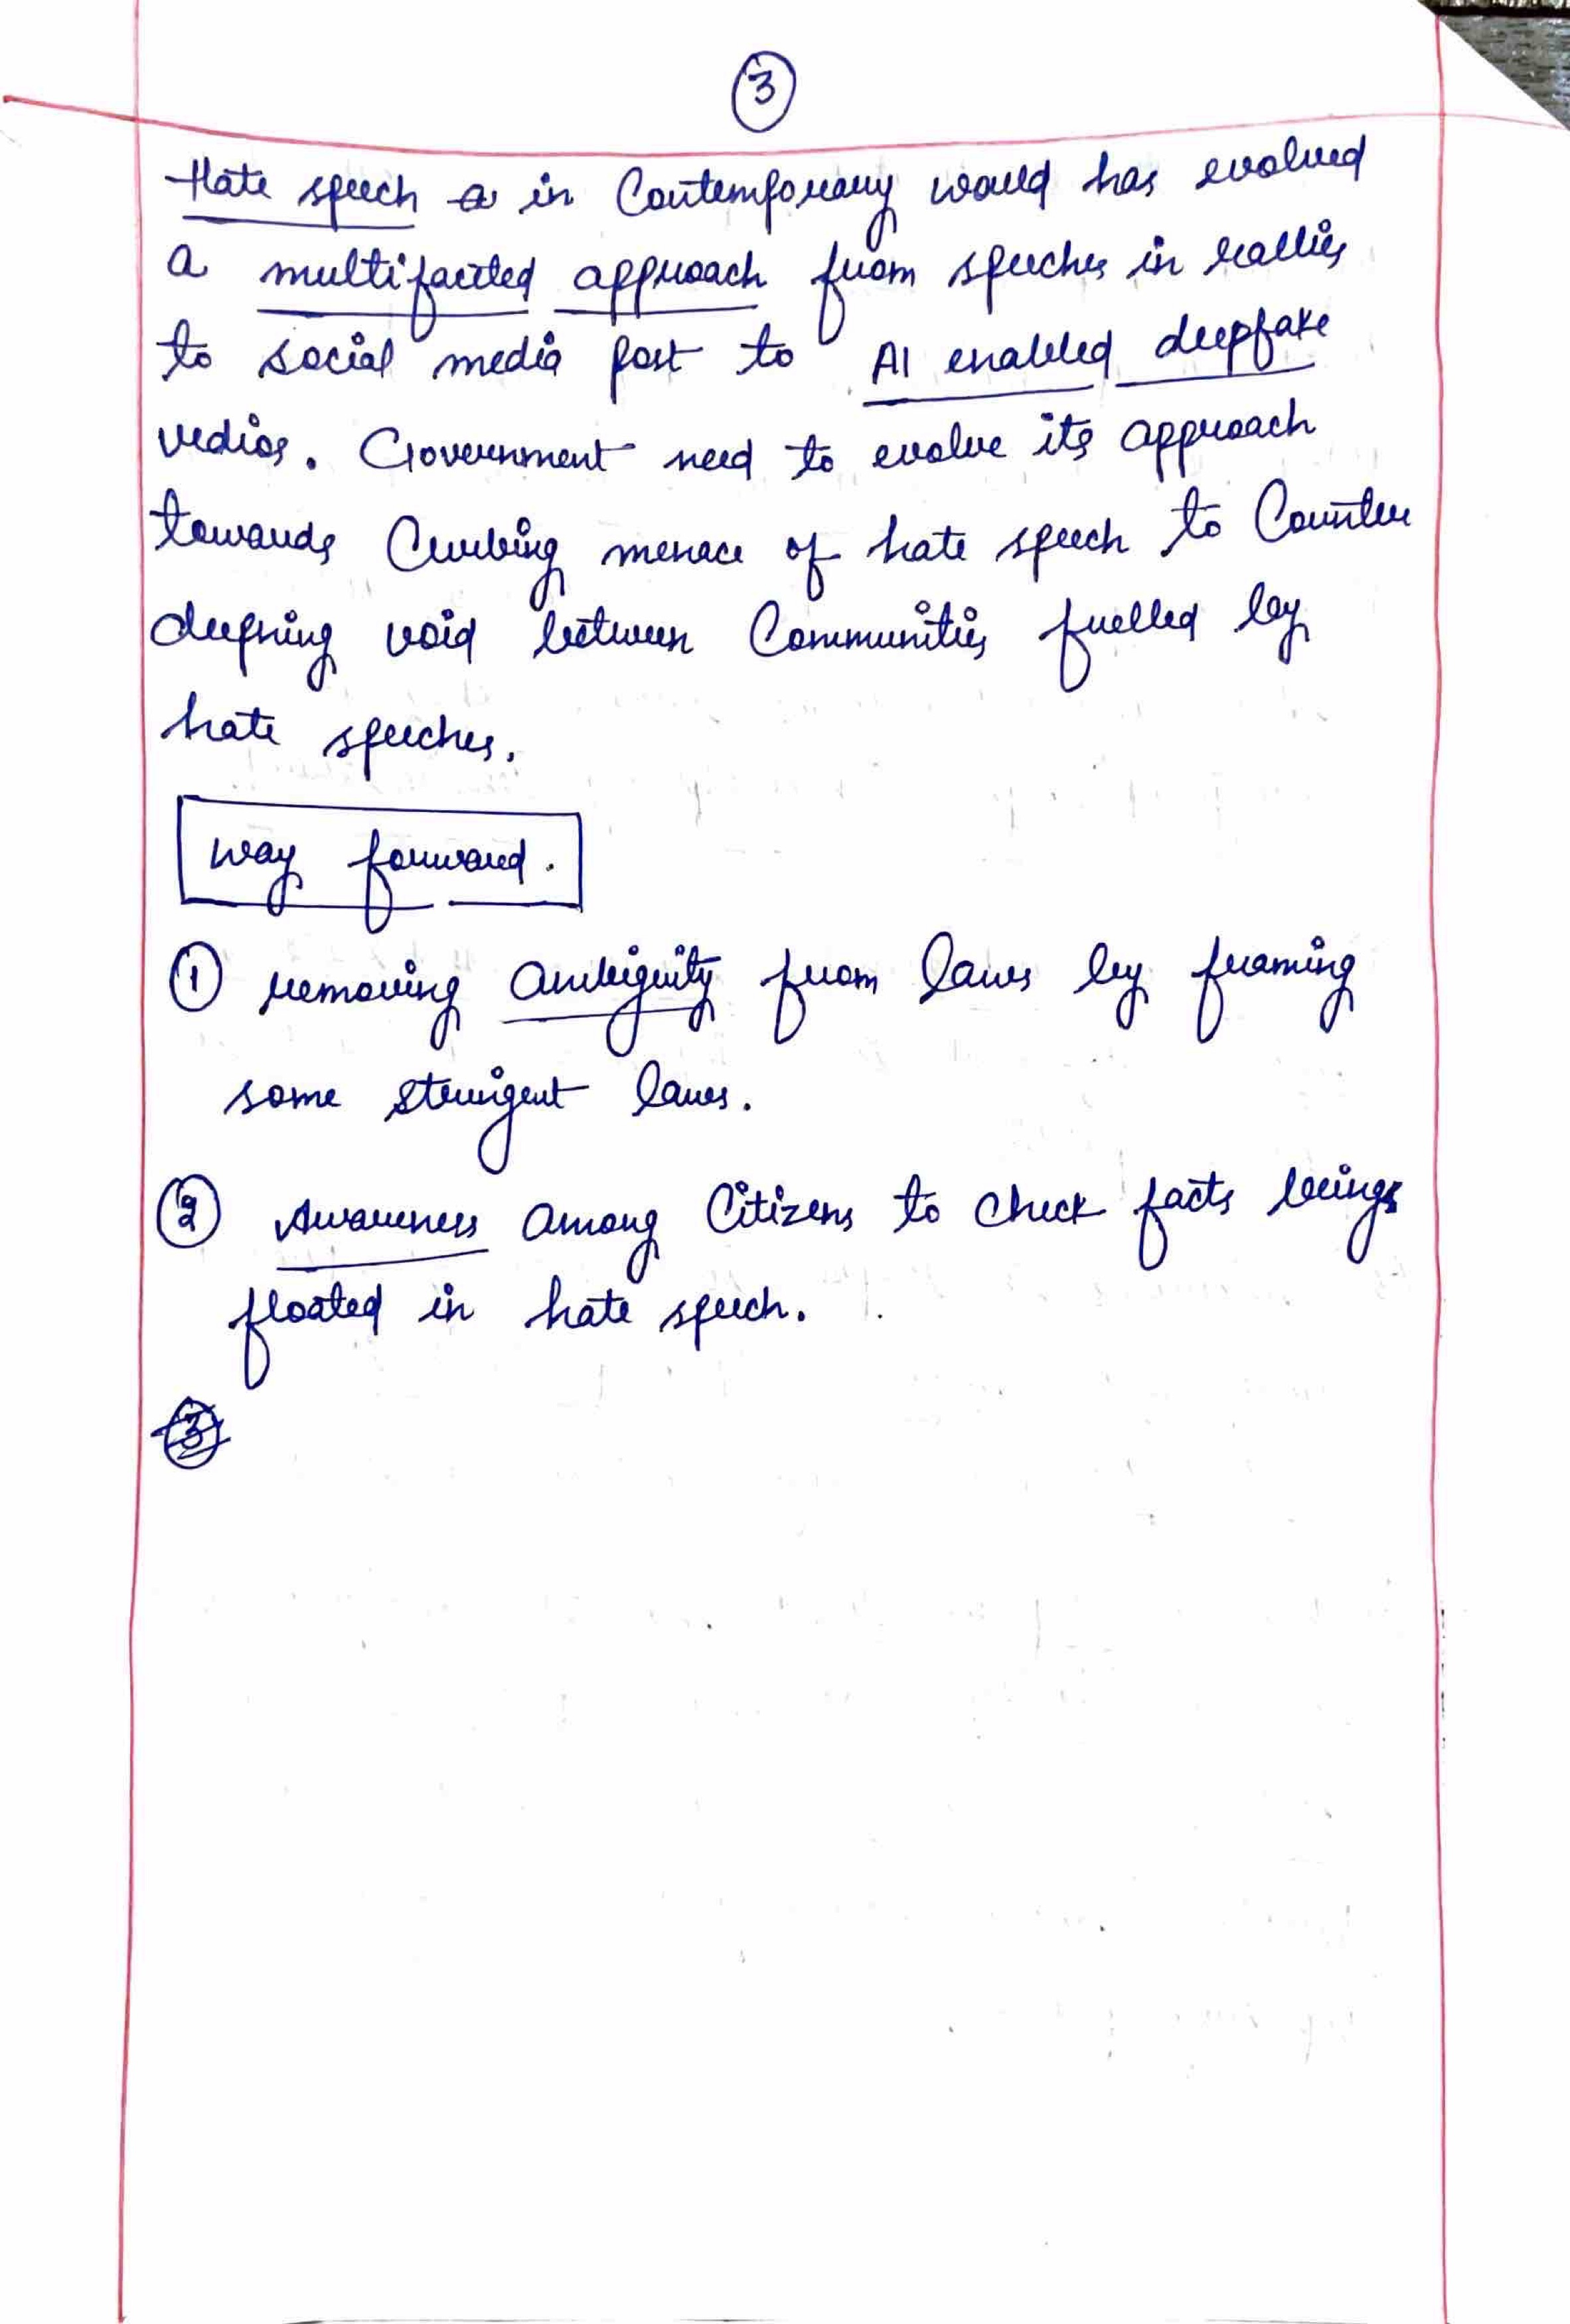 3
Hate speech a in Contemporary world has evolved
a multifacited approach from speeches in rallies
to social media post to AI enabled deepfake
vedios. Government need to evolve its approach
towards Curbing menace of hate speech to Counter
deepning void between Communities fuelled by
hate speeches.
way forward.
1 removing ambiguity from laws by framing
some stringent laws.
2 Awareness among Citizens to check facts beings
floated in hate speech.
3